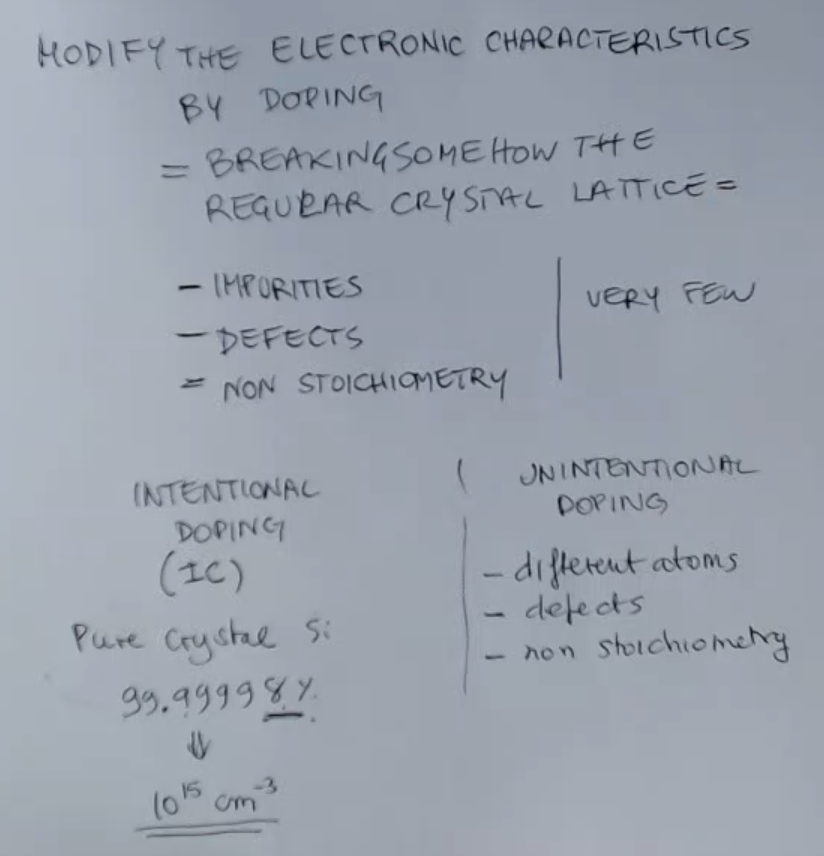 MODIFY THE ELECTRONIC CHARACTERISTICS
BY DOPING
= BREAKING SOMEHOW THE
REGULAR CRYSTAL LATTICE =
- IMPURITIES
- DEFECTS
= NON STOICHIOMETRY
VERY FEW
INTENTIONAL
DOPING
(IC)
Pure Crystal Si
99.99998%
⇓
10¹⁵ cm⁻³
UNINTENTIONAL
DOPING
- different atoms
- defects
- non stoichiometry